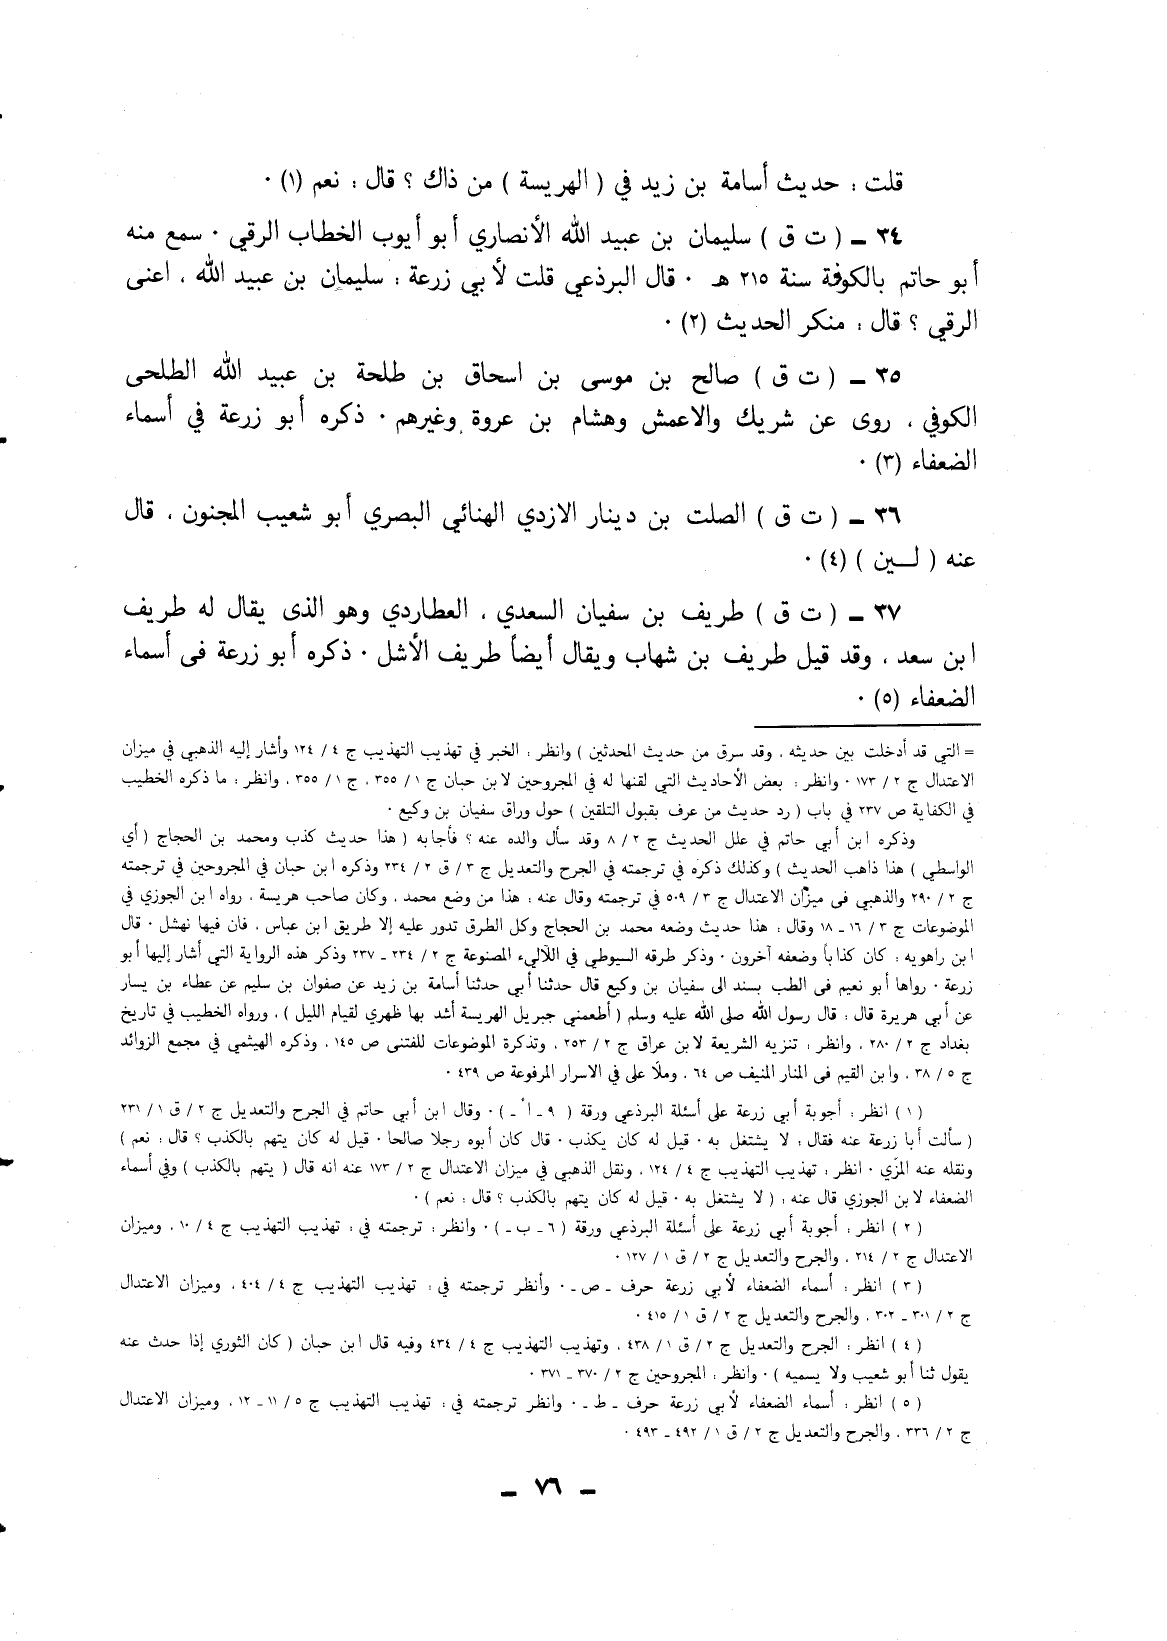 قلت : حديث أسامة بن زيد في ( الهريسة ) من ذاك ؟ قال : نعم (١) ٠
٣٤ ـ ( ت ق ) سليمان بن عبيد الله الأنصاري أبو أيوب الخطاب الرقي ٠ سمع منه
أبو حاتم بالكوفة سنة ٢١٥ هـ ٠ قال البرذعي قلت لأبي زرعة : سليمان بن عبيد الله ، اعنى
الرقي ؟ قال : منكر الحديث (٢) ٠
٣٥ ـ ( ت ق ) صالح بن موسى بن اسحاق بن طلحة بن عبيد الله الطلحى
الكوفي ، روى عن شريك والاعمش وهشام بن عروة وغيرهم ٠ ذكره أبو زرعة في أسماء
الضعفاء (٣) ٠
٣٦ ـ ( ت ق ) الصلت بن دينار الازدي الهنائي البصري أبو شعيب المجنون ، قال
عنه ( لـــين ) (٤) ٠
٣٧ ـ ( ت ق ) طريف بن سفيان السعدي ، العطاردي وهو الذى يقال له طريف
ابن سعد ، وقد قيل طريف بن شهاب ويقال أيضاً طريف الأشل ٠ ذكره أبو زرعة فى أسماء
الضعفاء (٥) ٠
= التي قد أدخلت بين حديثه ، وقد سرق من حديث المحدثين ) وانظر : الخبر في تهذيب التهذيب ج ٤ / ١٢٤ وأشار إليه الذهبي في ميزان
الاعتدال ج ٢ / ١٧٣ ٠ وانظر : بعض الأحاديث التي لقنها له في المجروحين لابن حبان ج ١ / ٣٥٥ ، ج ١ / ٣٥٥ ، وانظر : ما ذكره الخطيب
في الكفاية ص ٢٣٧ في باب ( رد حديث من عرف بقبول التلقين ) حول وراق سفيان بن وكيع ٠
وذكره ابن أبي حاتم في علل الحديث ج ٢ / ٨ وقد سأل والده عنه ؟ فأجابه ( هذا حديث كذب ومحمد بن الحجاج ( أي
الواسطي ) هذا ذاهب الحديث ) وكذلك ذكره في ترجمته في الجرح والتعديل ج ٣ / ق ٢ / ٢٣٤ وذكره ابن حبان في المجروحين في ترجمته
ج ٢ / ٢٩٠ والذهبي فى ميزان الاعتدال ج ٣ / ٥٠٩ في ترجمته وقال عنه : هذا من وضع محمد ، وكان صاحب هريسة ، رواه ابن الجوزي في
الموضوعات ج ٣ / ١٦ ـ ١٨ وقال : هذا حديث وضعه محمد بن الحجاج وكل الطرق تدور عليه إلا طريق ابن عباس ، فان فيها نهشل ٠ قال
ابن راهويه : كان كذاباً وضعفه آخرون ٠ وذكر طرقه السيوطي في اللآليء المصنوعة ج ٢ / ٢٣٤ ـ ٢٣٧ وذكر هذه الرواية التي أشار إليها أبو
زرعة ٠ رواها أبو نعيم فى الطب بسند الى سفيان بن وكيع قال حدثنا أبي حدثنا أسامة بن زيد عن صفوان بن سليم عن عطاء بن يسار
عن أبي هريرة قال : قال رسول الله صلى الله عليه وسلم ( أطعمني جبريل الهريسة أشد بها ظهري لقيام الليل ) ، ورواه الخطيب في تاريخ
بغداد ج ٢ / ٢٨٠ ، وانظر : تنزيه الشريعة لابن عراق ج ٢ / ٢٥٣ ، وتذكرة الموضوعات للفتنى ص ١٤٥ ، وذكره الهيثمي في مجمع الزوائد
ج ٥ / ٣٨ ، وابن القيم فى المنار المنيف ص ٦٤ ، وملا على في الاسرار المرفوعة ص ٤٣٩ ٠
( ١ ) انظر : أجوبة أبي زرعة على أسئلة البرذعي ورقة ( ٩ ـ أ ـ ) ٠ وقال ابن أبي حاتم في الجرح والتعديل ج ٢ / ق ١ / ٢٣١
( سألت أبا زرعة عنه فقال : لا يشتغل به ٠ قيل له كان يكذب ٠ قال كان أبوه رجلا صالحا ٠ قيل له كان يتهم بالكذب ؟ قال : نعم )
ونقله عنه المزي ٠ انظر : تهذيب التهذيب ج ٤ / ١٢٤ ، ونقل الذهبي في ميزان الاعتدال ج ٢ / ١٧٣ عنه انه قال ( يتهم بالكذب ) وفي أسماء
الضعفاء لابن الجوزي قال عنه : ( لا يشتغل به ٠ قيل له كان يتهم بالكذب ؟ قال : نعم ) ٠
( ٢ ) انظر : أجوبة أبي زرعة على أسئلة البرذعي ورقة ( ٦ ـ ب ـ ) ٠ وانظر : ترجمته في : تهذيب التهذيب ج ٤ / ١٠ ، وميزان
الاعتدال ج ٢ / ٢١٤ ، والجرح والتعديل ج ٢ / ق ١ / ١٢٧ ٠
( ٣ ) انظر : أسماء الضعفاء لأبي زرعة حرف ـ ص ـ ٠ وأنظر ترجمته في : تهذيب التهذيب ج ٤ / ٤٠٤ ، وميزان الاعتدال
ج ٢ / ٣٠١ ـ ٣٠٢ ، والجرح والتعديل ج ٢ / ق ١ / ٤١٥ ٠
( ٤ ) انظر : الجرح والتعديل ج ٢ / ق ١ / ٤٣٨ ، وتهذيب التهذيب ج ٤ / ٤٣٤ وفيه قال ابن حبان ( كان الثوري إذا حدث عنه
يقول ثنا أبو شعيب ولا يسميه ) ٠ وانظر : المجروحين ج ٢ / ٣٧٠ ـ ٣٧١ ٠
( ٥ ) انظر : أسماء الضعفاء لأبي زرعة حرف ـ ط ـ ٠ وانظر ترجمته في : تهذيب التهذيب ج ٥ / ١١ ـ ١٢ ، وميزان الاعتدال
ج ٢ / ٣٣٦ ، والجرح والتعديل ج ٢ / ق ١ / ٤٩٢ ـ ٤٩٣ ٠
ـ ٧٦ ـ